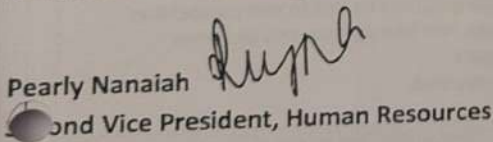 Pearly Nanaiah
ond Vice President, Human Resources